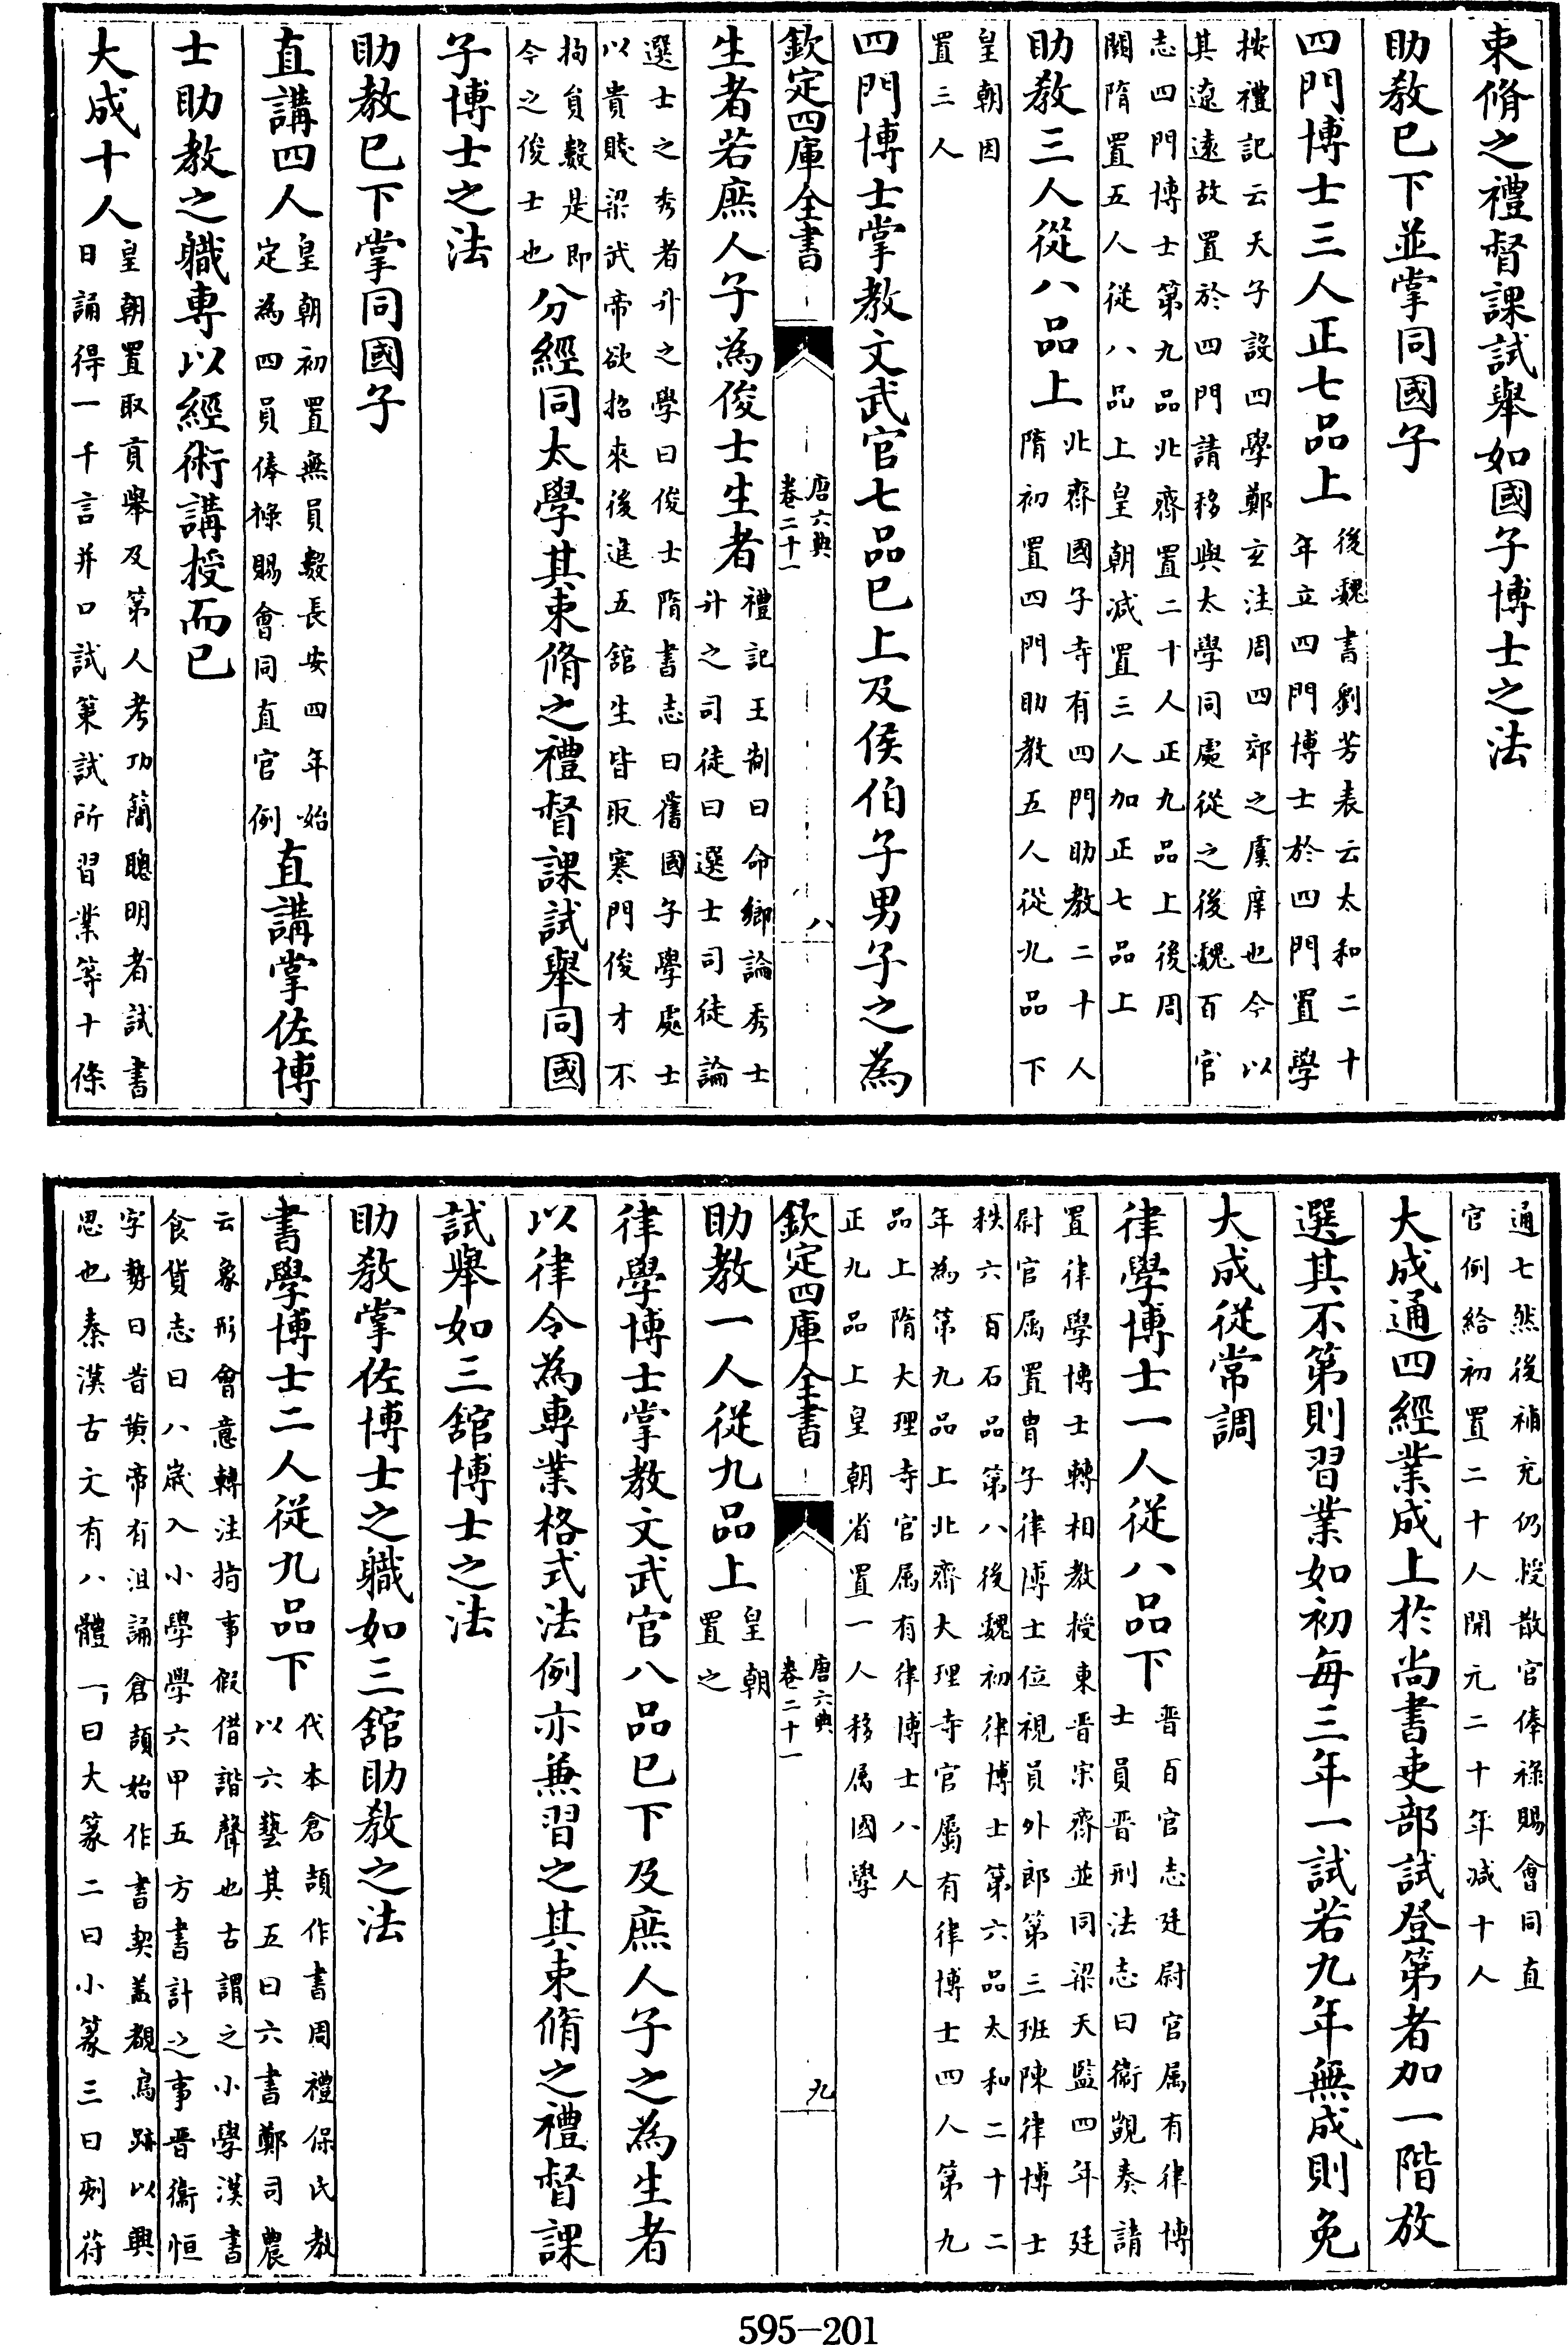 束脩之禮督課試舉如國子博士之法
助教已下並掌同國子
四門博士三人正七品上後魏書劉芳表云太和二十年立四門博士於四門置學
按禮記云天子設四學鄭玄注周四郊之虞庠也今以其遼遠故置於四門請移與太學同處從之後魏百官
志四門博士第九品北齊置二十人正九品上後周闕隋置五人從八品上皇朝減置三人加正七品上
助教三人從八品上北齊國子寺有四門助教二十人隋初置四門助教五人從九品下
皇朝因置三人
四門博士掌教文武官七品已上及侯伯子男子之為
欽定四庫全書 唐六典卷二十一 八
生者若庶人子為俊士生者禮記王制曰命鄉論秀士升之司徒曰選士司徒論
選士之秀者升之學曰俊士隋書志曰舊國子學處士以貴賤梁武帝欲招來後進五舘生皆取寒門俊才不
拘員數是即今之俊士也分經同太學其束脩之禮督課試舉同國
子博士之法
助教已下掌同國子
直講四人皇朝初置無員數長安四年始定為四員俸祿賜會同直官例直講掌佐博
士助教之職專以經術講授而已
大成十人皇朝置取貢舉及第人考功簡聰明者試書日誦得一千言并口試䇿試所習業等十條
通七然後補充仍授散官俸祿賜會同直官例給初置二十人開元二十年減十人
大成通四經業成上於尚書吏部試登第者加一階放
選其不第則習業如初每三年一試若九年無成則免
大成從常調
律學博士一人從八品下晋百官志廷尉官属有律博士員晋刑法志曰衛覬奏請
置律學博士轉相教授東晋宋齊並同梁天監四年廷尉官属置胄子律博士位視員外郎第三班陳律博士
秩六百石品第八後魏初律博士第六品太和二十二年為第九品上北齊大理寺官屬有律博士四人第九
品上隋大理寺官属有律博士八人正九品上皇朝省置一人移属國學
欽定四庫全書 唐六典卷二十一 九
助教一人從九品上皇朝置之
律學博士掌教文武官八品已下及庶人子之為生者
以律令為專業格式法例亦兼習之其束脩之禮督課
試舉如三舘博士之法
助教掌佐博士之職如三舘助教之法
書學博士二人從九品下代本倉頡作書周禮保氏教以六藝其五曰六書鄭司農
云象形會意轉注指事假借諧聲也古謂之小學漢書食貨志曰八歲入小學學六甲五方書計之事晋衞恒
字勢曰昔黄帝有沮誦倉頡始作書契盖覩鳥跡以興思也秦漢古文有八體一曰大篆二曰小篆三曰刻符
595-201